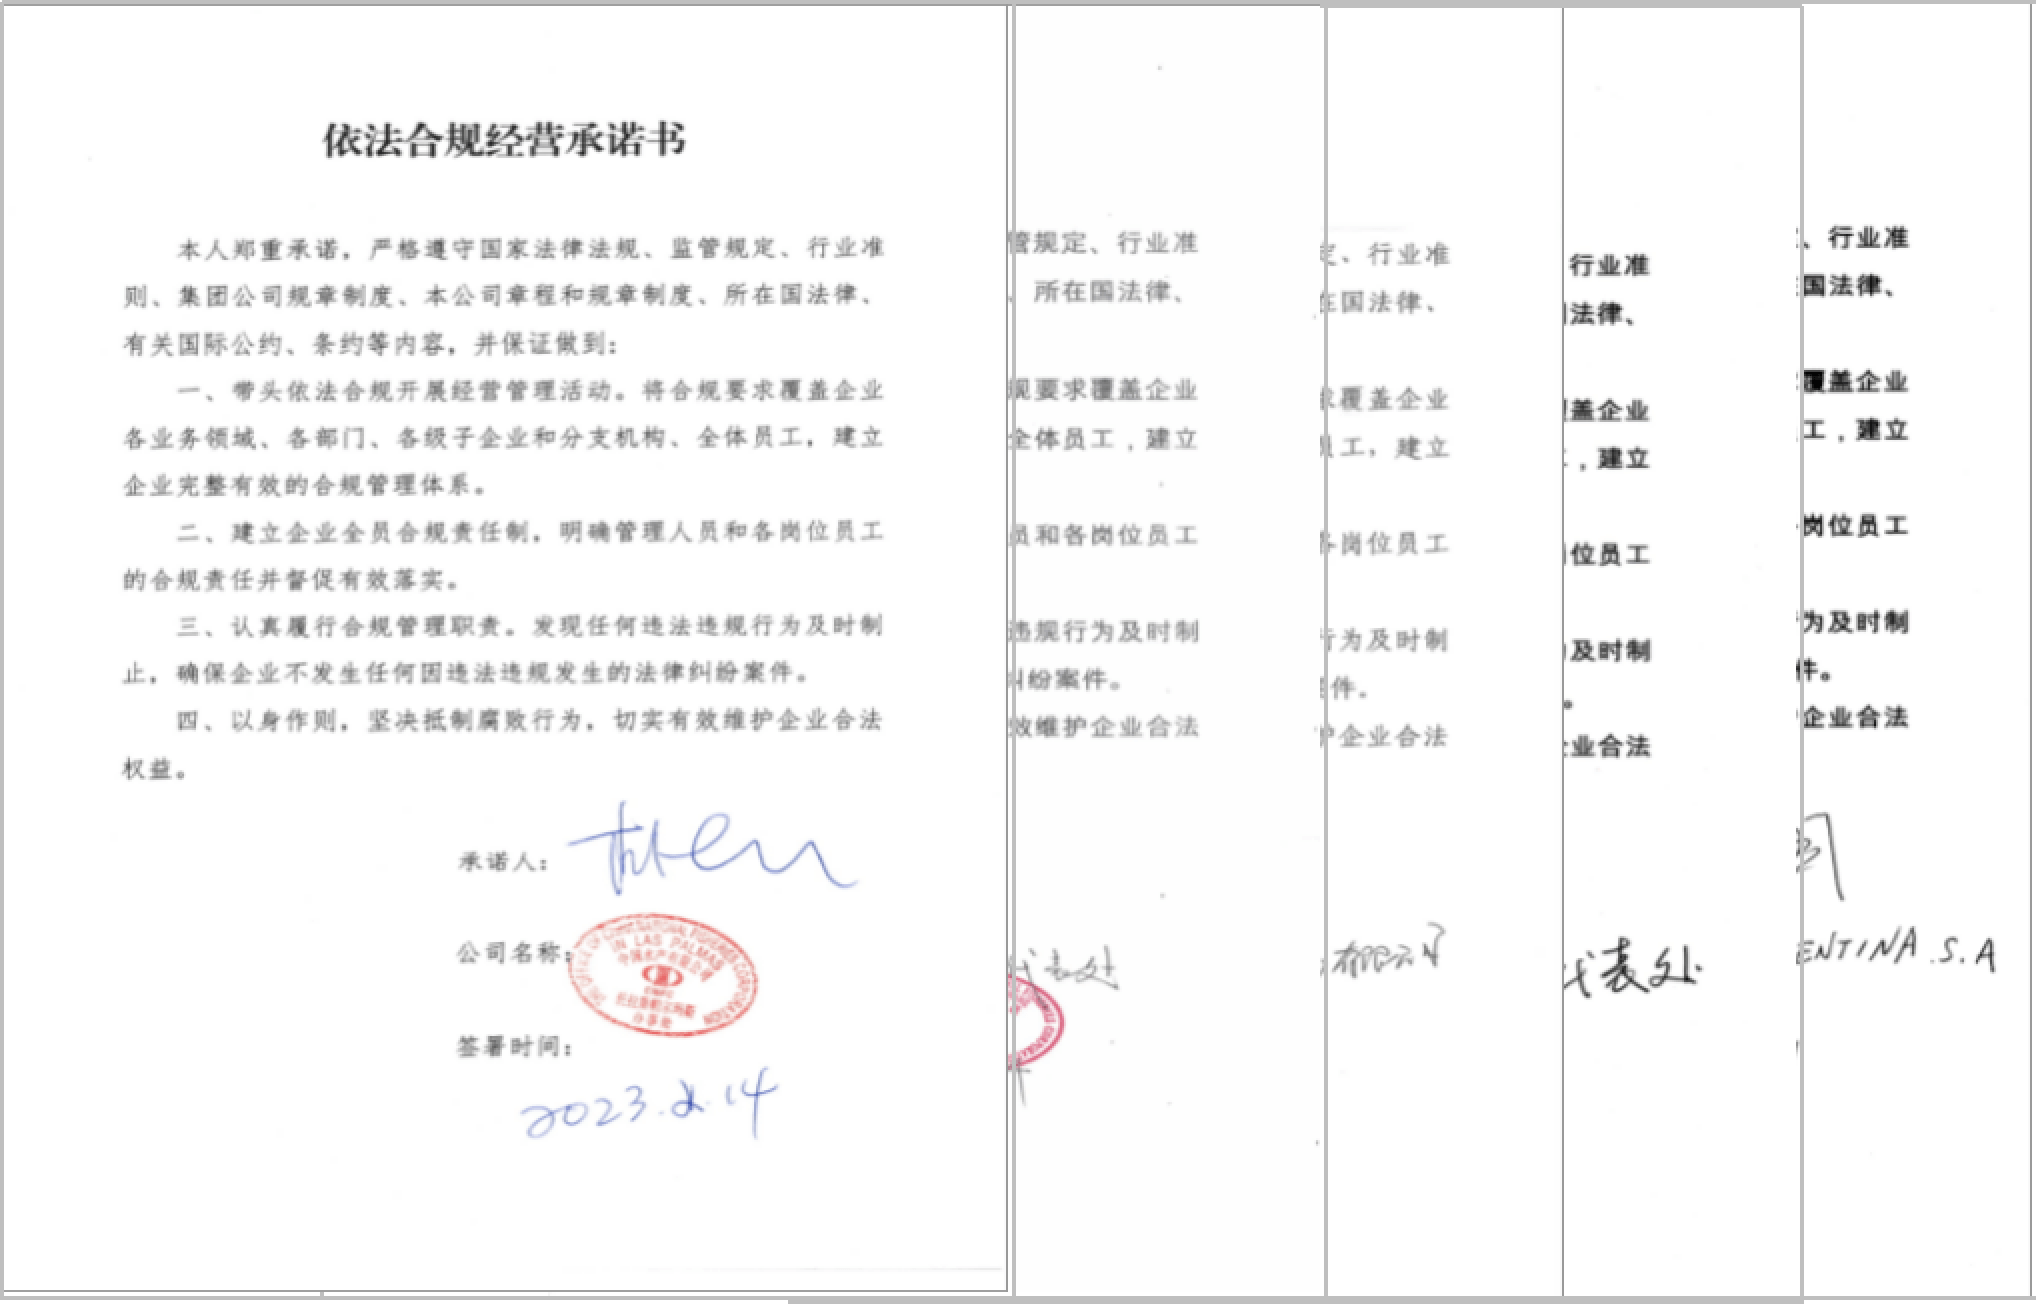 依法合规经营承诺书
本人郑重承诺，严格遵守国家法律法规、监管规定、行业准
则、集团公司规章制度、本公司章程和规章制度、所在国法律、
有关国际公约、条约等内容，并保证做到：
一、带头依法合规开展经营管理活动。将合规要求覆盖企业
各业务领域、各部门、各级子企业和分支机构、全体员工，建立
企业完整有效的合规管理体系。
二、建立企业全员合规责任制，明确管理人员和各岗位员工
的合规责任并督促有效落实。
三、认真履行合规管理职责。发现任何违法违规行为及时制
止，确保企业不发生任何因违法违规发生的法律纠纷案件。
四、以身作则，坚决抵制腐败行为，切实有效维护企业合法
权益。
承诺人：
公司名称：
IN LAS PALMAS
办事处
签署时间：
2023.2.14
管规定、行业准
、所在国法律、
规要求覆盖企业
全体员工，建立
员和各岗位员工
违规行为及时制
纠纷案件。
效维护企业合法
代表处
定、行业准
在国法律、
求覆盖企业
员工，建立
各岗位员工
行为及时制
案件。
护企业合法
有限公司
行业准
法律、
盖企业
，建立
位员工
及时制
。
业合法
代表处
、行业准
国法律、
覆盖企业
工，建立
岗位员工
为及时制
件。
企业合法
ENTINA.S.A